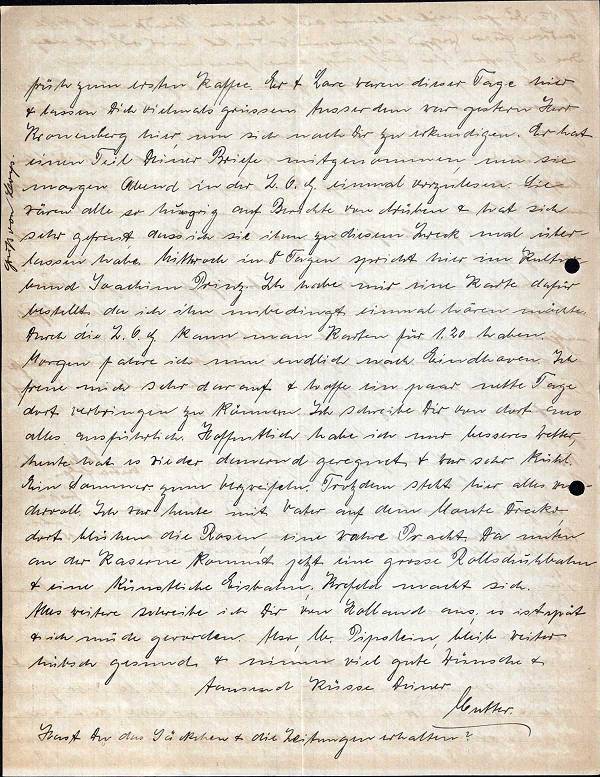 früh zum ersten Kaffee. Er & Lore waren dieser Tage hier
& lassen Dich vielmals grüssen. Ausserdem war gestern Herr
Kronenberg hier um sich nach Dir zu erkundigen. Er hat
einen Teil Deiner Briefe mitgenommen, um sie
morgen Abend in der Z. O. G. einmal vorzulesen. Sie
wären alle so hungrig auf Berichte von drüben & hat sich
sehr gefreut dass ich sie ihm zu diesem Zweck mal über-
lassen habe. Mittwoch in 8 Tagen spricht hier im Kultur
bund Joachim Prinz. Ich habe mir eine Karte dafür
bestellt da ich ihn unbedingt einmal hören möchte.
Durch die Z. O. G. kann man Karten für 1.20 haben.
Morgen fahre ich nun endlich nach Eindhoven. Ich
freue mich sehr darauf & hoffe ein paar nette Tage
dort verbringen zu können. Ich schreibe Dir von dort aus
alles ausführlich. Hoffentlich habe ich nur besseres Wetter
heute hat es wieder dauernd geregnet & war sehr kühl.
Ein Sommer zum Verzweifeln. Trotzdem steht hier alles wun-
dervoll. Ich war heute mit Vater auf dem Monte Drecko
dort blühen die Rosen eine wahre Pracht. Da unten
an der Kaserne kommt jetzt eine grosse Rollschuhbahn
& eine künstliche Eisbahn. Krefeld macht sich.
Alles weitere schreibe ich Dir von Holland aus, es ist spät
& ich müde geworden. Also, m. Pipslein, bleib weiter
hübsch gesund & nimm viel gute Wünsche &
tausend Küsse Deiner
Mutter.
Hast Du das Säckchen & die Zeitungen erhalten?